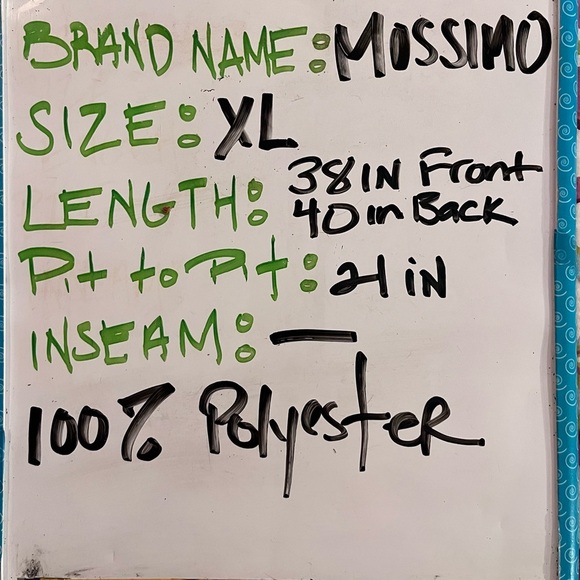 BRAND NAME: MOSSIMO
SIZE: XL
LENGTH: 38 IN Front
40 in Back
Pit to Pit: 21 IN
INSEAM: —
100% Polyester